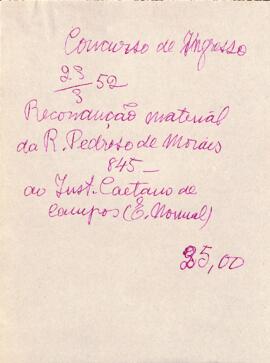 Concurso de Ingresso
23/3 52
Recondução material
da R. Pedroso de Morais
845 —
ao Inst. Caetano de
Campos (E. Normal)
35,00